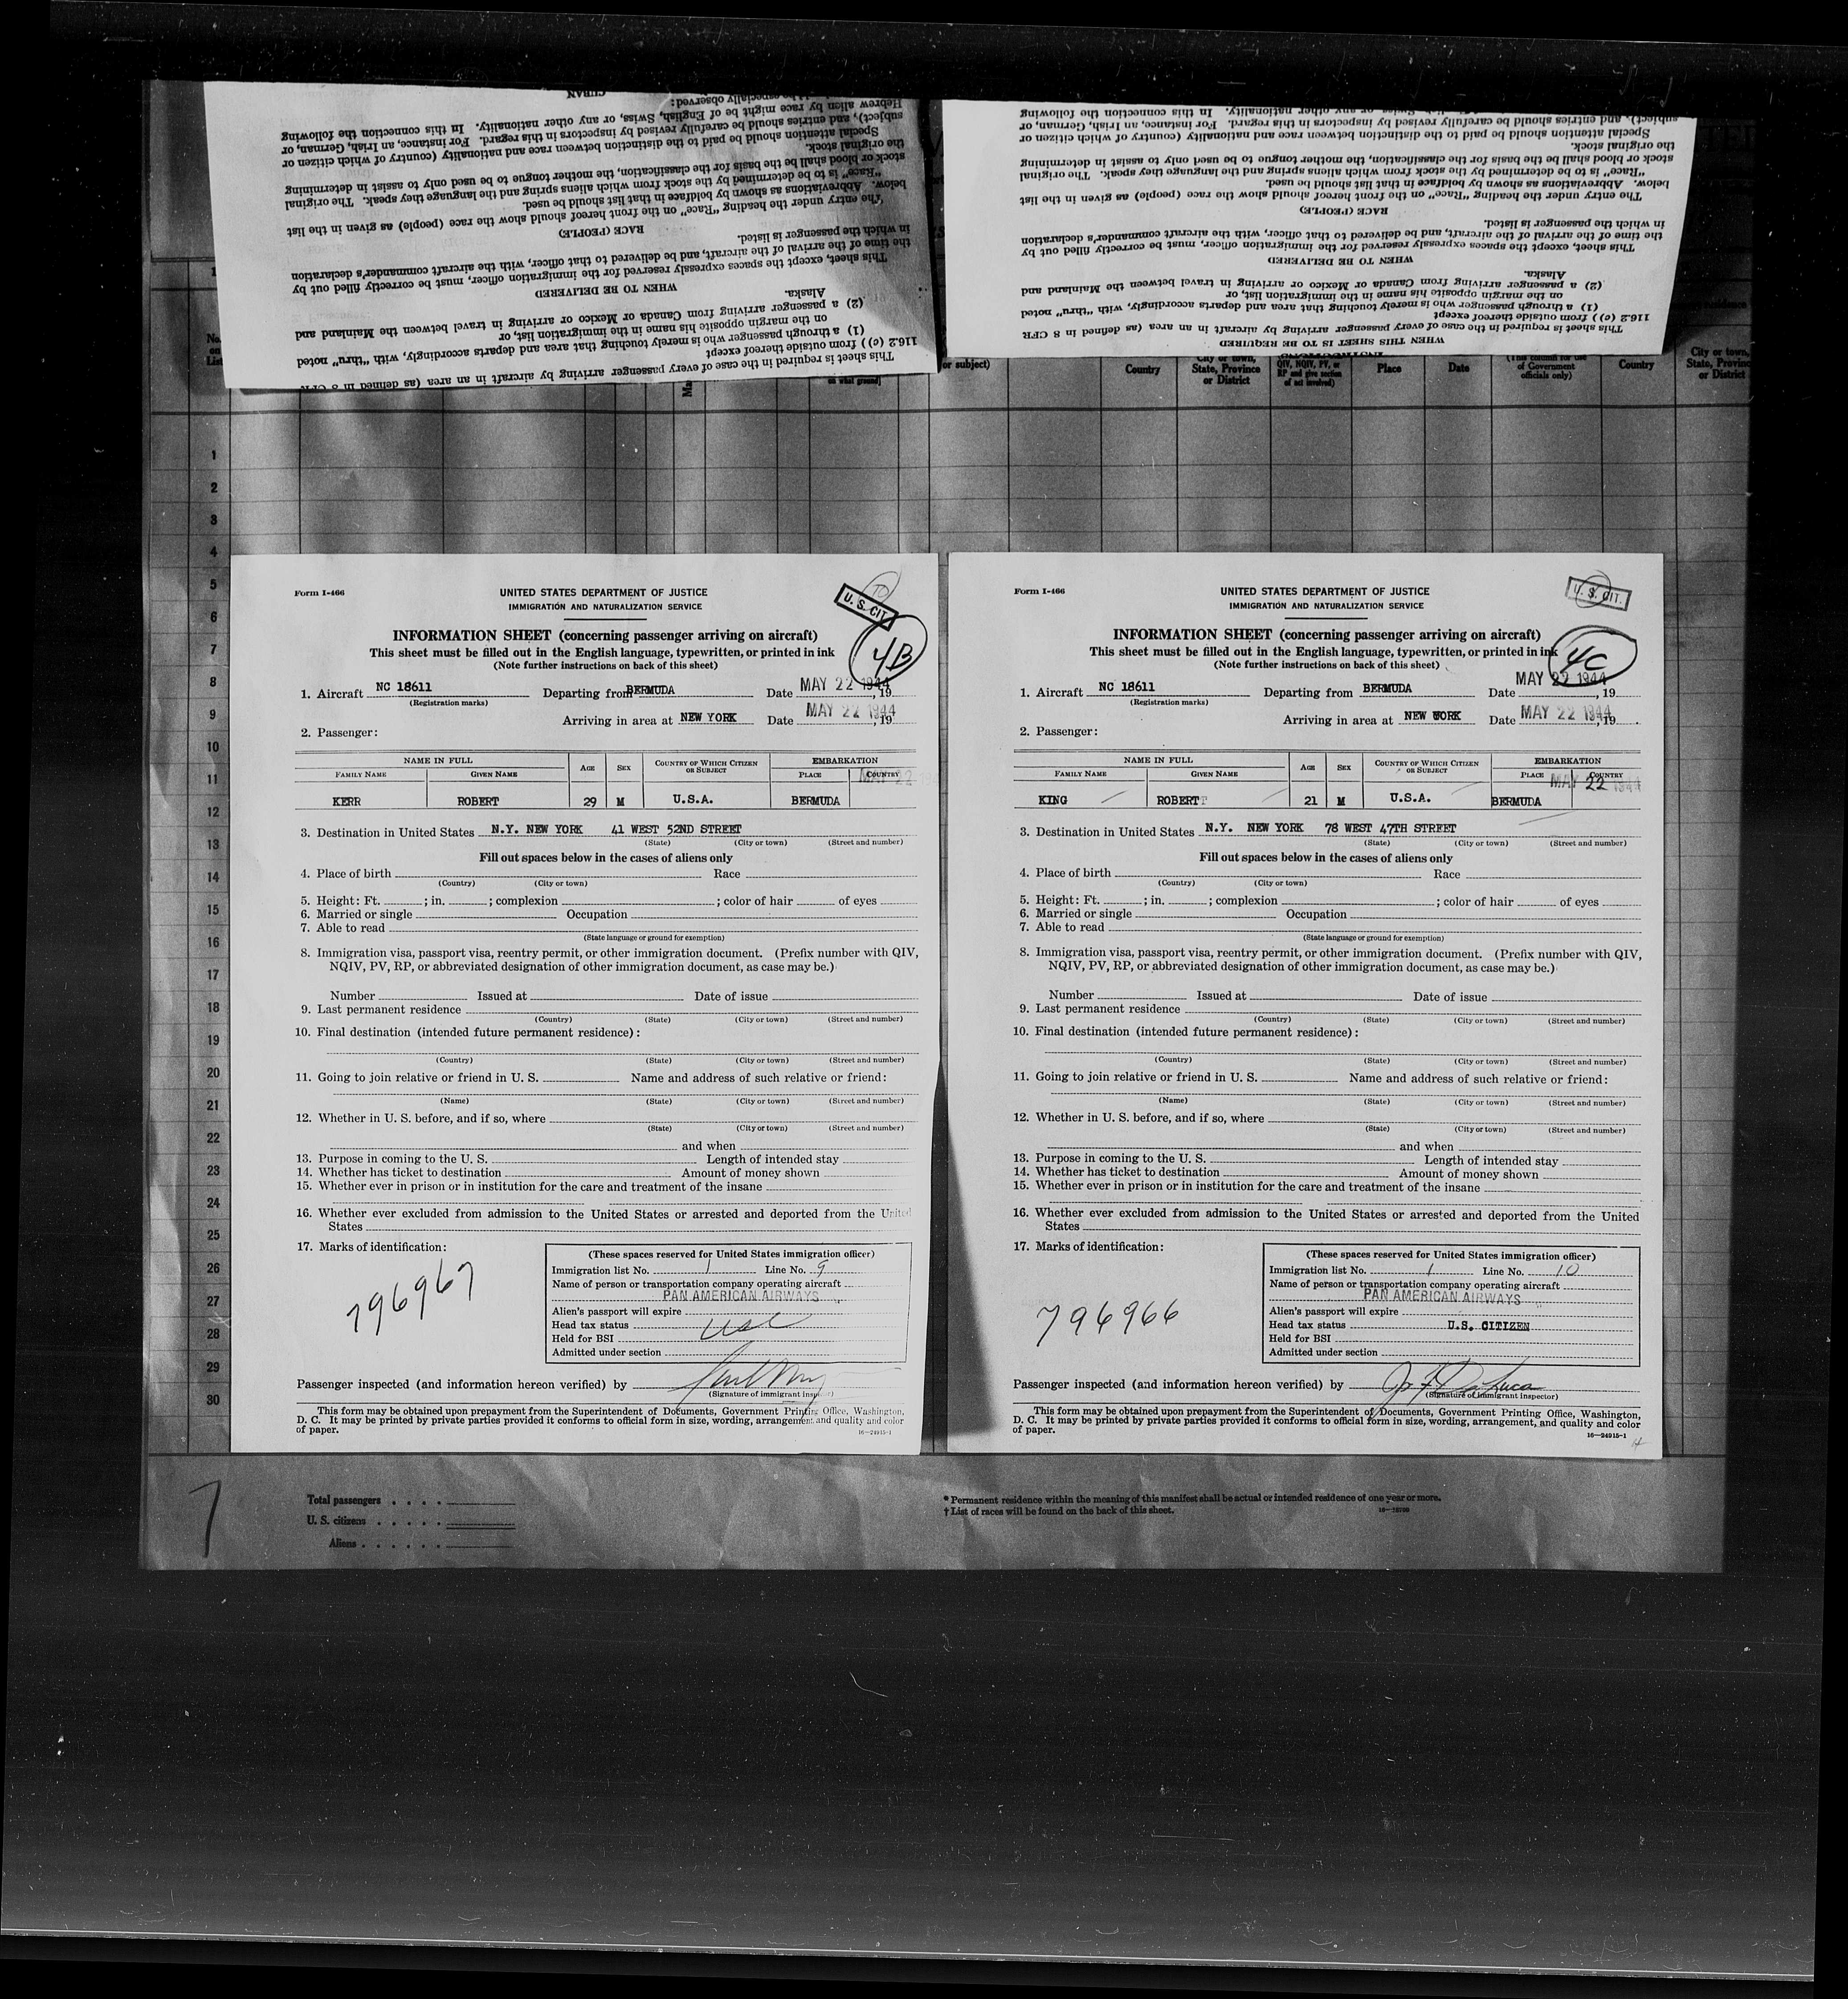 CUBAN
especially observed:
Hebrew alien by race might be of English, Swiss, or any other nationality. In this connection the following
subject), and entries should be carefully revised by inspectors in this regard. For instance, an Irish, German, or
Special attention should be paid to the distinction between race and nationality (country of which citizen or
the original stock.
stock or blood shall be the basis for the classification, the mother tongue to be used only to assist in determining
"Race" is to be determined by the stock from which aliens spring and the language they speak. The original
below. Abbreviations as shown by boldface in that list should be used.
The entry under the heading "Race" on the front hereof should show the race (people) as given in the list
RACE (PEOPLE)
in which the passenger is listed.
the time of the arrival of the aircraft, and be delivered to that officer, with the aircraft commander's declaration
This sheet, except the spaces expressly reserved for the immigration officer, must be correctly filled out by
WHEN TO BE DELIVERED
Alaska.
(2) a passenger arriving from Canada or Mexico or arriving in travel between the Mainland and
on the margin opposite his name in the immigration list, or
(1) a through passenger who is merely touching that area and departs accordingly, with "thru" noted
116.2 (c)) from outside thereof except
This sheet is required in the case of every passenger arriving by aircraft in an area (as defined in 8 CFR
or any other nationality. In this connection the following
subject), and entries should be carefully revised by inspectors in this regard. For instance, an Irish, German, or
Special attention should be paid to the distinction between race and nationality (country of which citizen or
the original stock.
stock or blood shall be the basis for the classification, the mother tongue to be used only to assist in determining
"Race" is to be determined by the stock from which aliens spring and the language they speak. The original
below. Abbreviations as shown by boldface in that list should be used.
The entry under the heading "Race" on the front hereof should show the race (people) as given in the list
RACE (PEOPLE)
in which the passenger is listed.
the time of the arrival of the aircraft, and be delivered to that officer, with the aircraft commander's declaration
This sheet, except the spaces expressly reserved for the immigration officer, must be correctly filled out by
WHEN TO BE DELIVERED
Alaska.
(2) a passenger arriving from Canada or Mexico or arriving in travel between the Mainland and
on the margin opposite his name in the immigration list, or
(1) a through passenger who is merely touching that area and departs accordingly, with "thru" noted
116.2 (c)) from outside thereof except
This sheet is required in the case of every passenger arriving by aircraft in an area (as defined in 8 CFR
WHEN THIS SHEET IS TO BE REQUIRED
INSTRUCTIONS
No. on List
on what ground)
or subject)
Country
City or town, State, Province or District
QIV, NQIV, PV, or RP and give section of act involved)
Place
Date
(This column for use of Government officials only)
Country
City or town, State, Province or District
1
2
3
4
5
6
7
8
9
10
11
12
13
14
15
16
17
18
19
20
21
22
23
24
25
26
27
28
29
30
Form I-466
UNITED STATES DEPARTMENT OF JUSTICE
IMMIGRATION AND NATURALIZATION SERVICE
U. S. CIT.
4B
INFORMATION SHEET (concerning passenger arriving on aircraft)
This sheet must be filled out in the English language, typewritten, or printed in ink
(Note further instructions on back of this sheet)
1. Aircraft NC 18611 Departing from BERMUDA Date MAY 22 1944, 19
(Registration marks)
Arriving in area at NEW YORK Date MAY 22 1944, 19
2. Passenger:
NAME IN FULL AGE SEX COUNTRY OF WHICH CITIZEN OR SUBJECT EMBARKATION
FAMILY NAME GIVEN NAME PLACE COUNTRY
MAY 22 1944
KERR ROBERT 29 M U.S.A. BERMUDA
3. Destination in United States N.Y. NEW YORK 41 WEST 52ND STREET
(State) (City or town) (Street and number)
Fill out spaces below in the cases of aliens only
4. Place of birth Race
(Country) (City or town)
5. Height: Ft. ; in. ; complexion ; color of hair of eyes
6. Married or single Occupation
7. Able to read
(State language or ground for exemption)
8. Immigration visa, passport visa, reentry permit, or other immigration document. (Prefix number with QIV,
NQIV, PV, RP, or abbreviated designation of other immigration document, as case may be.)
Number Issued at Date of issue
9. Last permanent residence
(Country) (State) (City or town) (Street and number)
10. Final destination (intended future permanent residence):
(Country) (State) (City or town) (Street and number)
11. Going to join relative or friend in U. S. Name and address of such relative or friend:
(Name) (State) (City or town) (Street and number)
12. Whether in U. S. before, and if so, where
(State) (City or town) (Street and number)
and when
13. Purpose in coming to the U. S. Length of intended stay
14. Whether has ticket to destination Amount of money shown
15. Whether ever in prison or in institution for the care and treatment of the insane
16. Whether ever excluded from admission to the United States or arrested and deported from the United
States
17. Marks of identification:
796967
(These spaces reserved for United States immigration officer)
Immigration list No. 1 Line No. 9
Name of person or transportation company operating aircraft
PAN AMERICAN AIRWAYS
Alien's passport will expire
Head tax status USC
Held for BSI
Admitted under section
Passenger inspected (and information hereon verified) by
(Signature of immigrant inspector)
This form may be obtained upon prepayment from the Superintendent of Documents, Government Printing Office, Washington,
D. C. It may be printed by private parties provided it conforms to official form in size, wording, arrangement, and quality and color
of paper.
16—24915-1
Form I-466
UNITED STATES DEPARTMENT OF JUSTICE
IMMIGRATION AND NATURALIZATION SERVICE
U. S. CIT.
4C
INFORMATION SHEET (concerning passenger arriving on aircraft)
This sheet must be filled out in the English language, typewritten, or printed in ink
(Note further instructions on back of this sheet)
1. Aircraft NC 18611 Departing from BERMUDA Date MAY 22 1944, 19
(Registration marks)
Arriving in area at NEW YORK Date MAY 22 1944, 19
2. Passenger:
NAME IN FULL AGE SEX COUNTRY OF WHICH CITIZEN OR SUBJECT EMBARKATION
FAMILY NAME GIVEN NAME PLACE COUNTRY
MAY 22 1944
KING ROBERT 21 M U.S.A. BERMUDA
3. Destination in United States N.Y. NEW YORK 78 WEST 47TH STREET
(State) (City or town) (Street and number)
Fill out spaces below in the cases of aliens only
4. Place of birth Race
(Country) (City or town)
5. Height: Ft. ; in. ; complexion ; color of hair of eyes
6. Married or single Occupation
7. Able to read
(State language or ground for exemption)
8. Immigration visa, passport visa, reentry permit, or other immigration document. (Prefix number with QIV,
NQIV, PV, RP, or abbreviated designation of other immigration document, as case may be.)
Number Issued at Date of issue
9. Last permanent residence
(Country) (State) (City or town) (Street and number)
10. Final destination (intended future permanent residence):
(Country) (State) (City or town) (Street and number)
11. Going to join relative or friend in U. S. Name and address of such relative or friend:
(Name) (State) (City or town) (Street and number)
12. Whether in U. S. before, and if so, where
(State) (City or town) (Street and number)
and when
13. Purpose in coming to the U. S. Length of intended stay
14. Whether has ticket to destination Amount of money shown
15. Whether ever in prison or in institution for the care and treatment of the insane
16. Whether ever excluded from admission to the United States or arrested and deported from the United
States
17. Marks of identification:
796966
(These spaces reserved for United States immigration officer)
Immigration list No. 1 Line No. 10
Name of person or transportation company operating aircraft
PAN AMERICAN AIRWAYS
Alien's passport will expire
Head tax status U.S. CITIZEN
Held for BSI
Admitted under section
Passenger inspected (and information hereon verified) by
(Signature of immigrant inspector)
This form may be obtained upon prepayment from the Superintendent of Documents, Government Printing Office, Washington,
D. C. It may be printed by private parties provided it conforms to official form in size, wording, arrangement, and quality and color
of paper.
16—24915-1
7
Total passengers
U. S. citizens
Aliens
* Permanent residence within the meaning of this manifest shall be actual or intended residence of one year or more.
† List of races will be found on the back of this sheet.